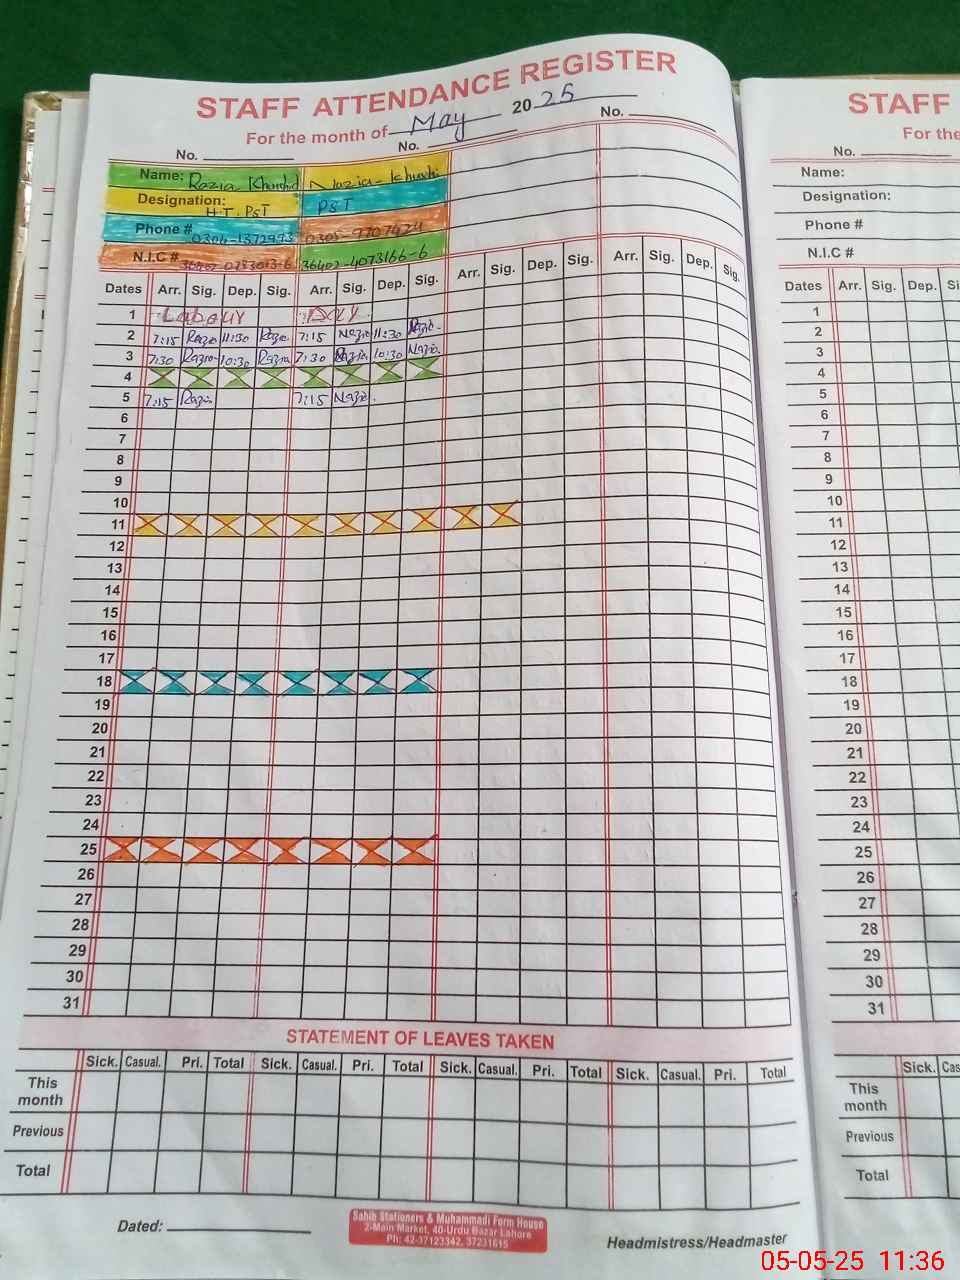 STAFF ATTENDANCE REGISTER
For the month of May 2025
No. No. No.
Name: Razia Khurshid Nazia
Designation: H.T. PST PST
Phone # 0305-9707424
N.I.C # 36402-4073166-6
Dates Arr. Sig. Dep. Sig. Arr. Sig. Dep. Sig. Arr. Sig. Dep. Sig. Arr. Sig. Dep. Sig.
1 Labour Day
2 7:15 Razia 11:30 Razia 7:15 Nazia 11:30
3 7:30 Razia 10:30 Razia 7:30 10:30 Nazia
4
5 7:15 Razia 7:15 Nazia
6
7
8
9
10
11
12
13
14
15
16
17
18
19
20
21
22
23
24
25
26
27
28
29
30
31
STATEMENT OF LEAVES TAKEN
Sick. Casual. Pri. Total Sick. Casual. Pri. Total Sick. Casual. Pri. Total Sick. Casual. Pri. Total
This month
Previous
Total
Dated:
Sahib Stationers & Muhammadi Form House
2-Main Market, 40-Urdu Bazar Lahore
Ph: 42-37123342, 37231615
Headmistress/Headmaster
STAFF
For the
No.
Name:
Designation:
Phone #
N.I.C #
Dates Arr. Sig. Dep.
1
2
3
4
5
6
7
8
9
10
11
12
13
14
15
16
17
18
19
20
21
22
23
24
25
26
27
28
29
30
31
Sick. Cas
This month
Previous
Total
05-05-25 11:36